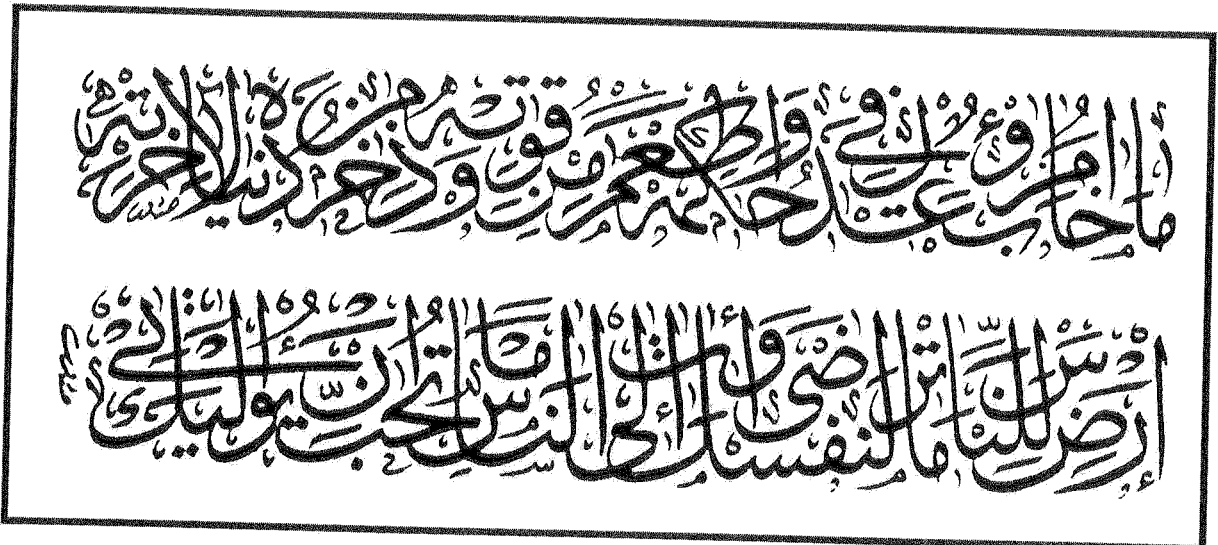 ما خاب امرؤ عدل في حكمه وأطعم من قوته وذخر من دنياه لآخرته
إرض للناس ما ترضى لنفسك وأت إلى الناس ما تحب أن يؤتى إليك